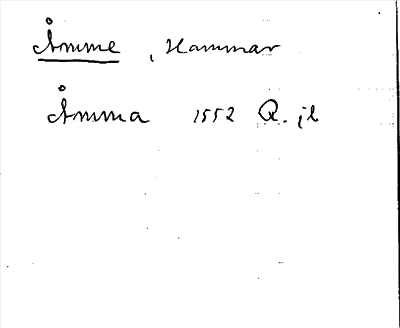 Åmme, Hammar
Åmma 1552 Q. jb